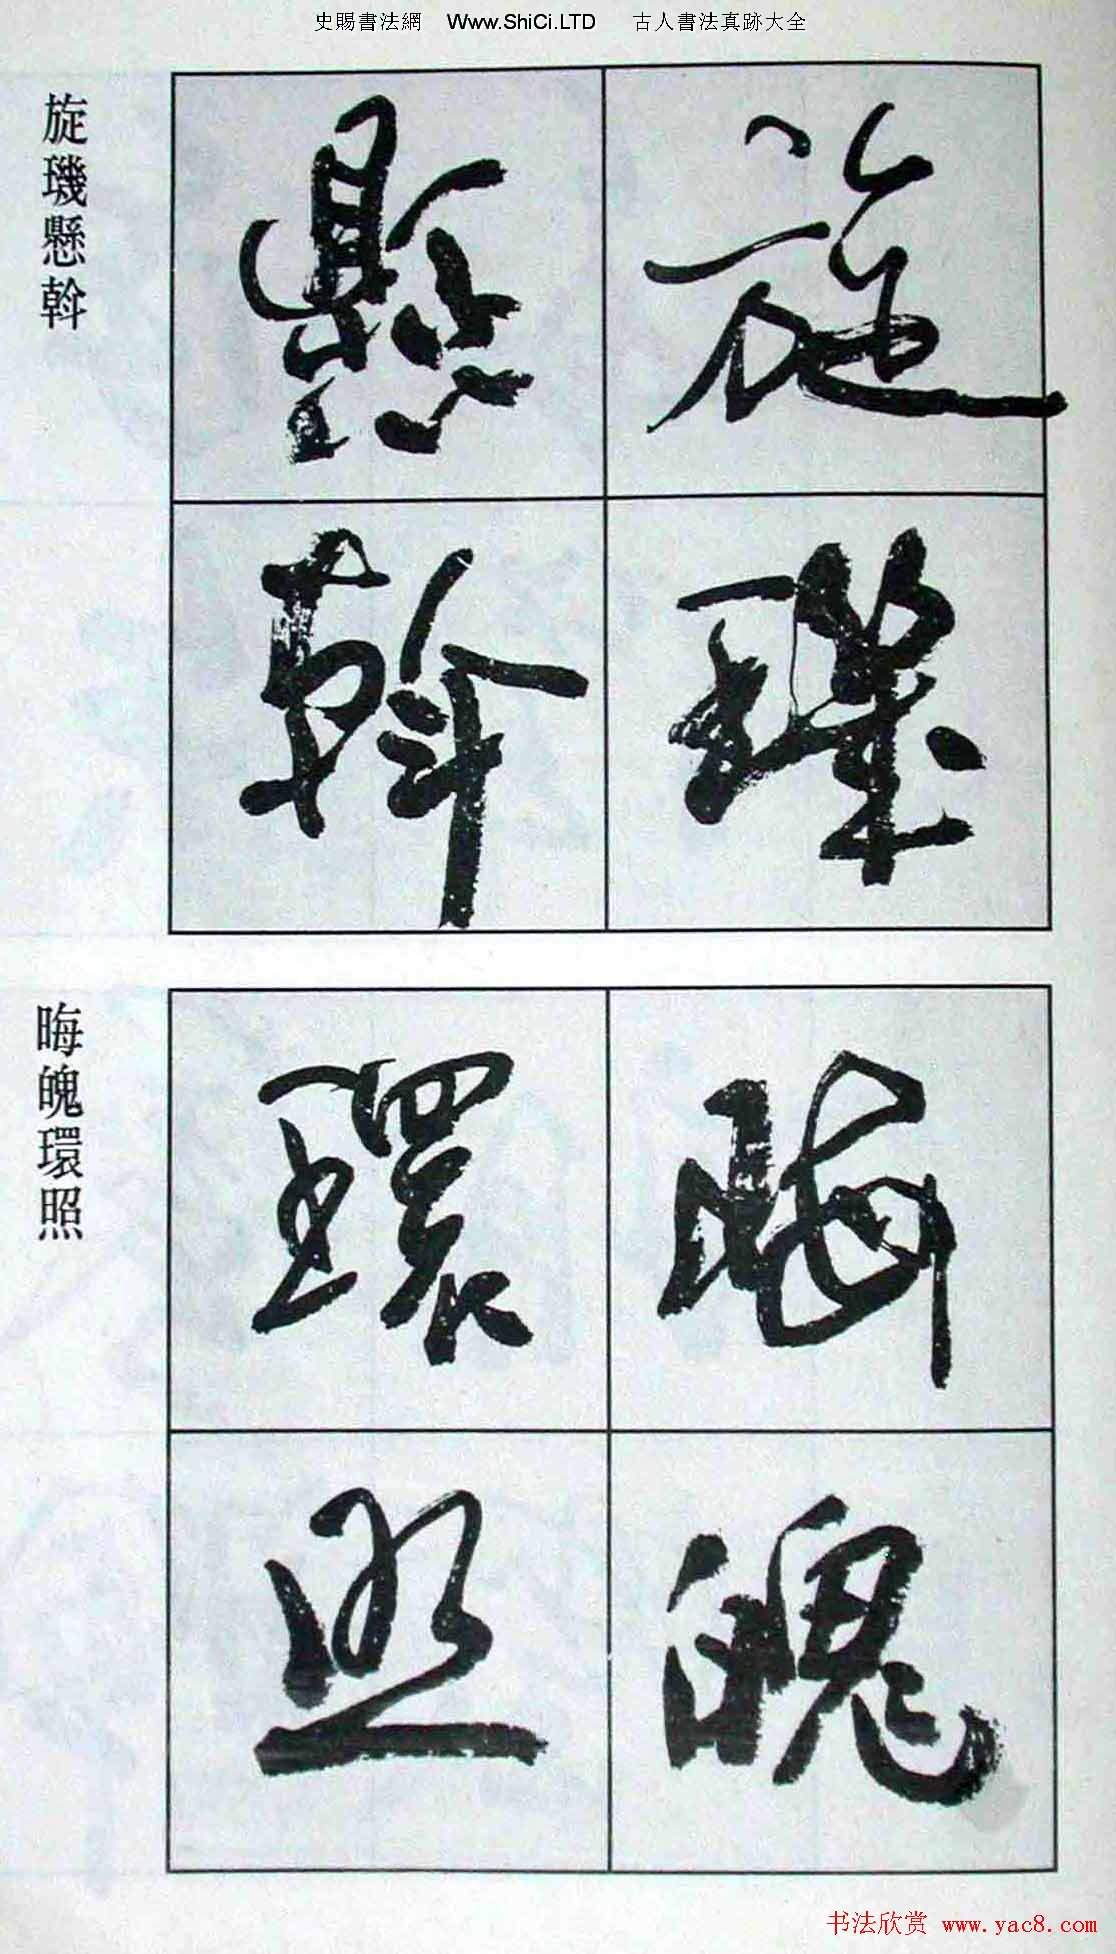 史賜書法網 Www.ShiCi.LTD 古人書法真跡大全
旋璣懸斡
旋璣
懸斡
晦魄環照
晦魄
環照
书法欣赏 www.yac8.com